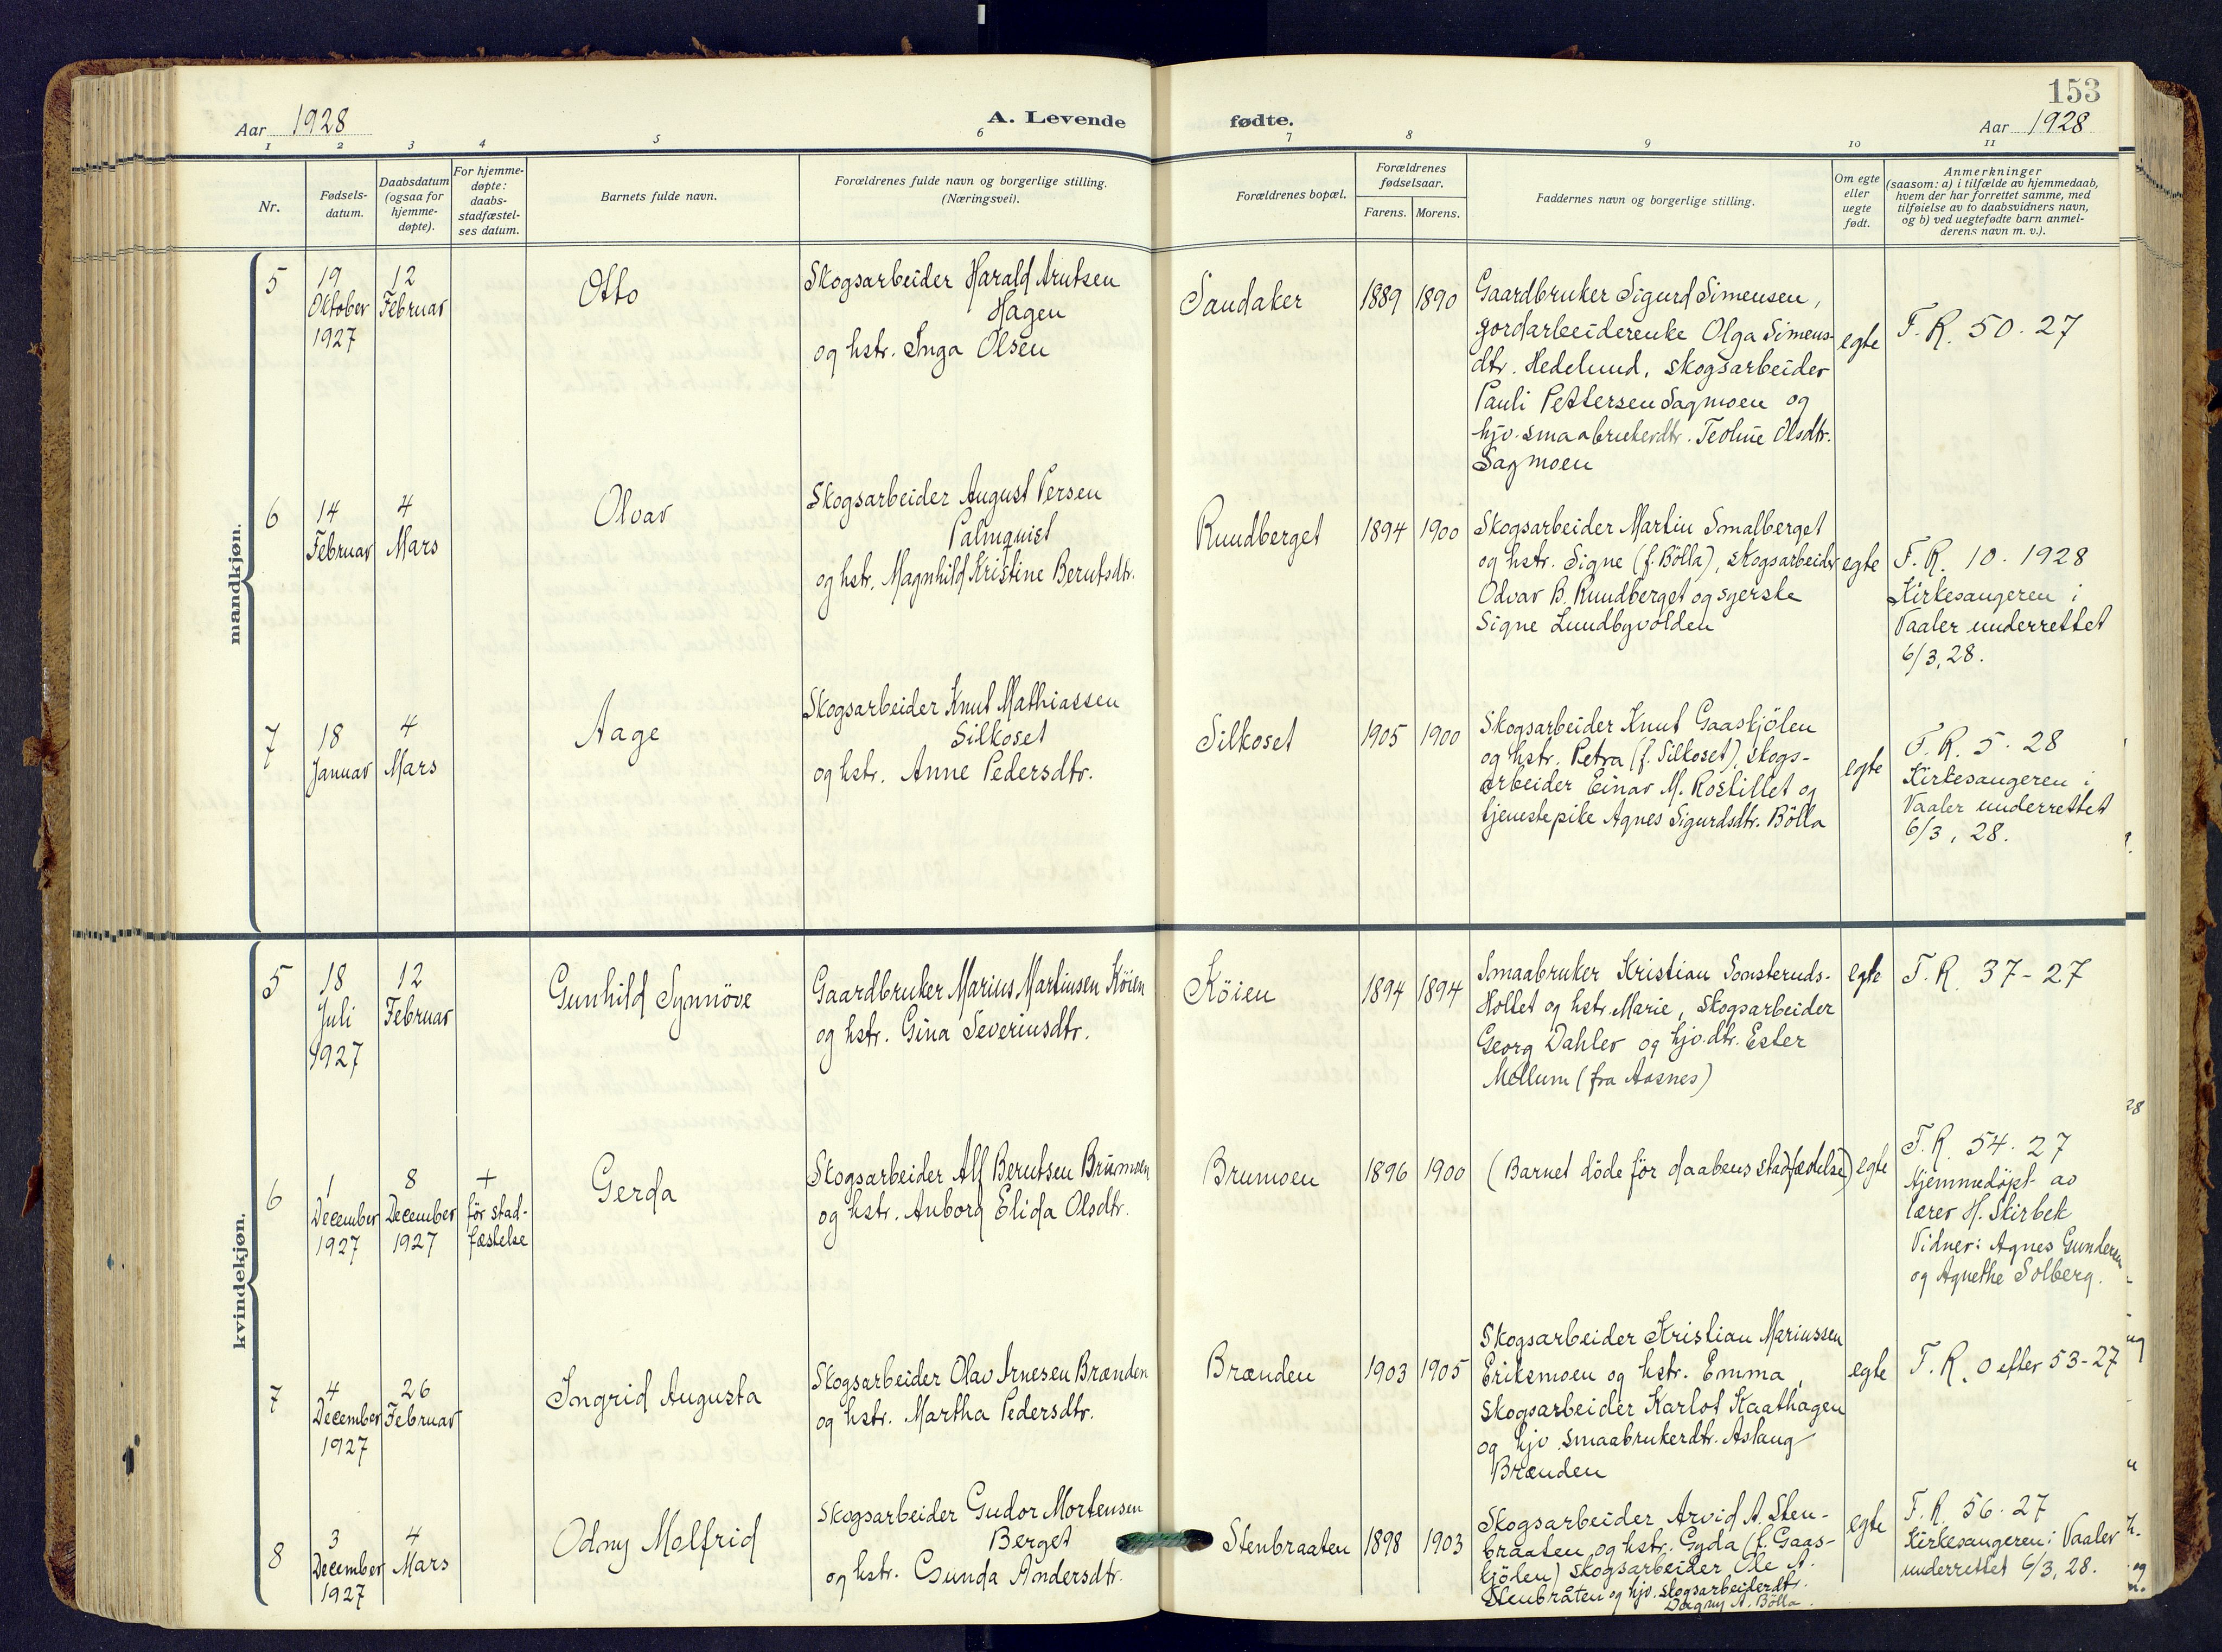 153
Aar 1928
A. Levende
fødte.
Aar 1928
1 2 3 4 5 6 7 8 9 10 11
Nr.
Fødsels-
datum.
Daabsdatum
(ogsaa for
hjemme-
døpte).
For hjemme-
døpte:
daabs-
stadfæstel-
ses datum.
Barnets fulde navn.
Forældrenes fulde navn og borgerlige stilling.
(Næringsvei).
Forældrenes bopæl.
Forældrenes
fødselsaar.
Farens. Morens.
Faddernes navn og borgerlige stilling.
Om egte
eller
uegte
født.
Anmerkninger
(saasom: a) i tilfælde av hjemmedaab,
hvem der har forrettet samme, med
tilføielse av to daabsvidners navn,
og b) ved uegtefødte barn anmel-
derens navn m. v.).
mandkjøn.
5
19
Oktober
1927
12
Februar
Otto
Skogsarbeider Harald Arntsen
Hagen
og hstr. Inga Olsen
Sandaker
1889 1890
Gaardbruker Sigurd Simensen,
gordarbeiderenke Olga Simens-
dtr. Hedelund, skogsarbeider
Pauli Pettersen Sagmoen og
hjv. smaabrukerdtr. Teoline Olsdtr.
Sagmoen
egte
F. R. 50. 27
6
14
Februar
4
Mars
Olvar
Skogsarbeider August Persen
Palmquist
og hstr. Magnhild Kristine Berntsdtr.
Rundberget
1894 1900
Skogsarbeider Martin Smalberget
og hstr. Signe (f. Bölla), skogsarbeider
Odvar B. Rundberget og syerske
Signe Lundbyvolden
egte
F. R. 10. 1928
Kirkesangeren i
Vaaler underrettet
6/3, 28.
7
18
Januar
4
Mars
Aage
Skogsarbeider Knut Mathiassen
Silkoset
og hstr. Anne Pedersdtr.
Silkoset
1905 1900
Skogsarbeider Knut Gaaskjölen
og hstr. Petra (f. Silkoset), skogs-
arbeider Einar M. Rostillet og
tjenestepike Agnes Sigurdsdtr. Bölla
egte
F. R. 5. 28
Kirkesangeren i
Vaaler underrettet
6/3, 28.
kvindekjøn.
5
18
Juli
1927
12
Februar
Gunhild Synnöve
Gaardbruker Marius Martinsen Köien
og hstr. Gina Severinsdtr.
Köien
1894 1894
Smaabruker Kristian Sonsteruds-
Hollet og hstr. Marie, skogsarbeider
Georg Dahler og hjv. dtr. Ester
Mellum (fra Aasnes)
egte
F. R. 37-27
6
1
December
1927
8
December
1927
+
för stad-
fæstelse
Gerda
Skogsarbeider Alf Berntsen Brumoen
og hstr. Anborg Elida Olsdtr.
Brumoen
1896 1900
(Barnet döde för daabens stadfæstelse)
egte
F. R. 54. 27
Hjemmedöpt av
lærer H. Skirbek
Vidner: Agnes Gundersen
og Agnethe Solberg.
7
4
December
1927
26
Februar
Ingrid Augusta
Skogsarbeider Olav Arnesen Brænden
og hstr. Martha Pedersdtr.
Brænden
1903 1905
Skogsarbeider Kristian Mariussen
Eriksmoen og hstr. Emma,
skogsarbeider Karlot Kaathagen
og hjv. smaabrukerdtr. Aslaug
Brænden
egte
F. R. 0 efter 53-27
8
3
December
1927
4
Mars
Odny Molfrid
Skogsarbeider Gudor Mortensen
Berget
og hstr. Gunda Andersdtr.
Stenbraaten
1898 1903
Skogsarbeider Arvid A. Sten-
braaten og hstr. Gyda (f. Gaas-
kjölen) skogsarbeider Ole A.
Stenbråten og hjv. skogsarbeiderdtr.
Dagny A. Bölla.
egte
F. R. 56. 27
Kirkesangeren i Vaaler
underrettet 6/3, 28.